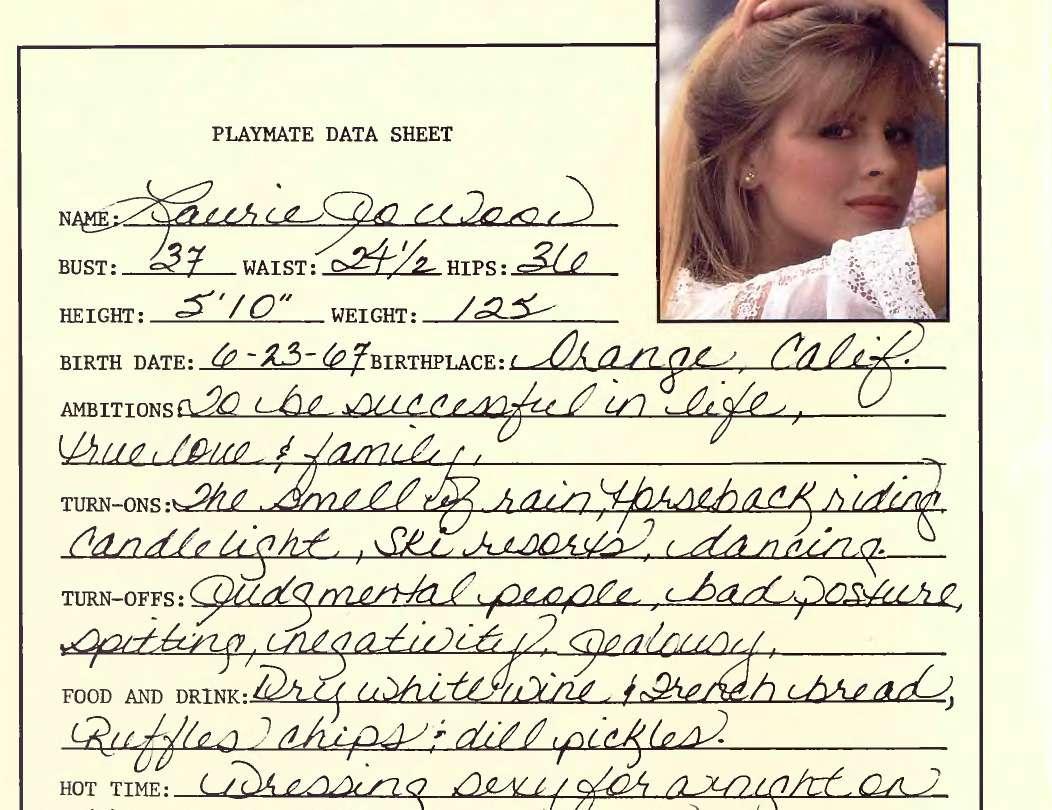 PLAYMATE DATA SHEET
NAME: Laurie Jo Wood
BUST: 37 WAIST: 24 1/2 HIPS: 36
HEIGHT: 5'10" WEIGHT: 125
BIRTH DATE: 6-23-67 BIRTHPLACE: Orange, Calif.
AMBITIONS: To be successful in life,
true love & family.
TURN-ONS: The smell of rain, Horseback riding
Candlelight, Ski resorts, dancing.
TURN-OFFS: Judgmental people, bad posture,
spitting, negativity, Jealousy.
FOOD AND DRINK: Dry white wine & French bread,
Ruffles chips & dill pickles.
HOT TIME: Dressing sexy for a night on